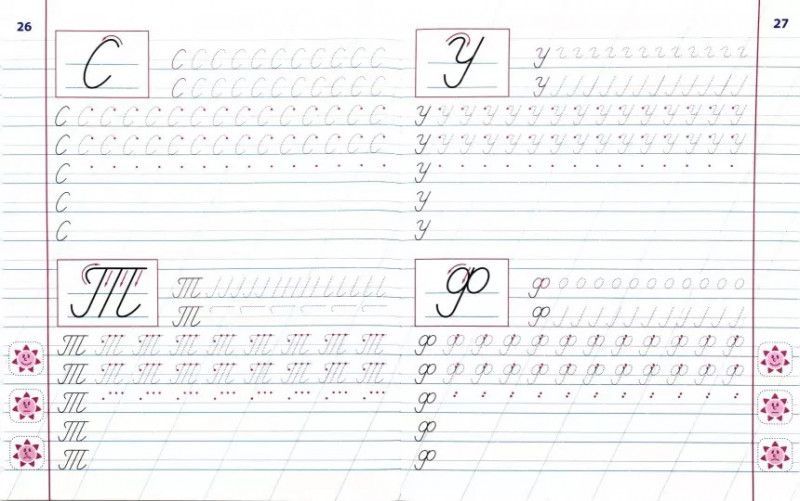 26
С
С С С С С С С С С С С
С С С С С С С С С С С
С С С С С С С С С С С С С С С
С С С С С С С С С С С С С С С
С
С
С
Т
Т
Т
Т Т Т Т Т Т Т Т Т
Т Т Т Т Т Т Т Т Т
Т
Т
Т
27
У
У
У
У У У У У У У У У У У У У У У У
У У У У У У У У У У У У У У У У
У
У
У
Ф
Ф
Ф
Ф Ф Ф Ф Ф Ф Ф Ф Ф Ф Ф Ф Ф
Ф Ф Ф Ф Ф Ф Ф Ф Ф Ф Ф Ф Ф
Ф
Ф
Ф